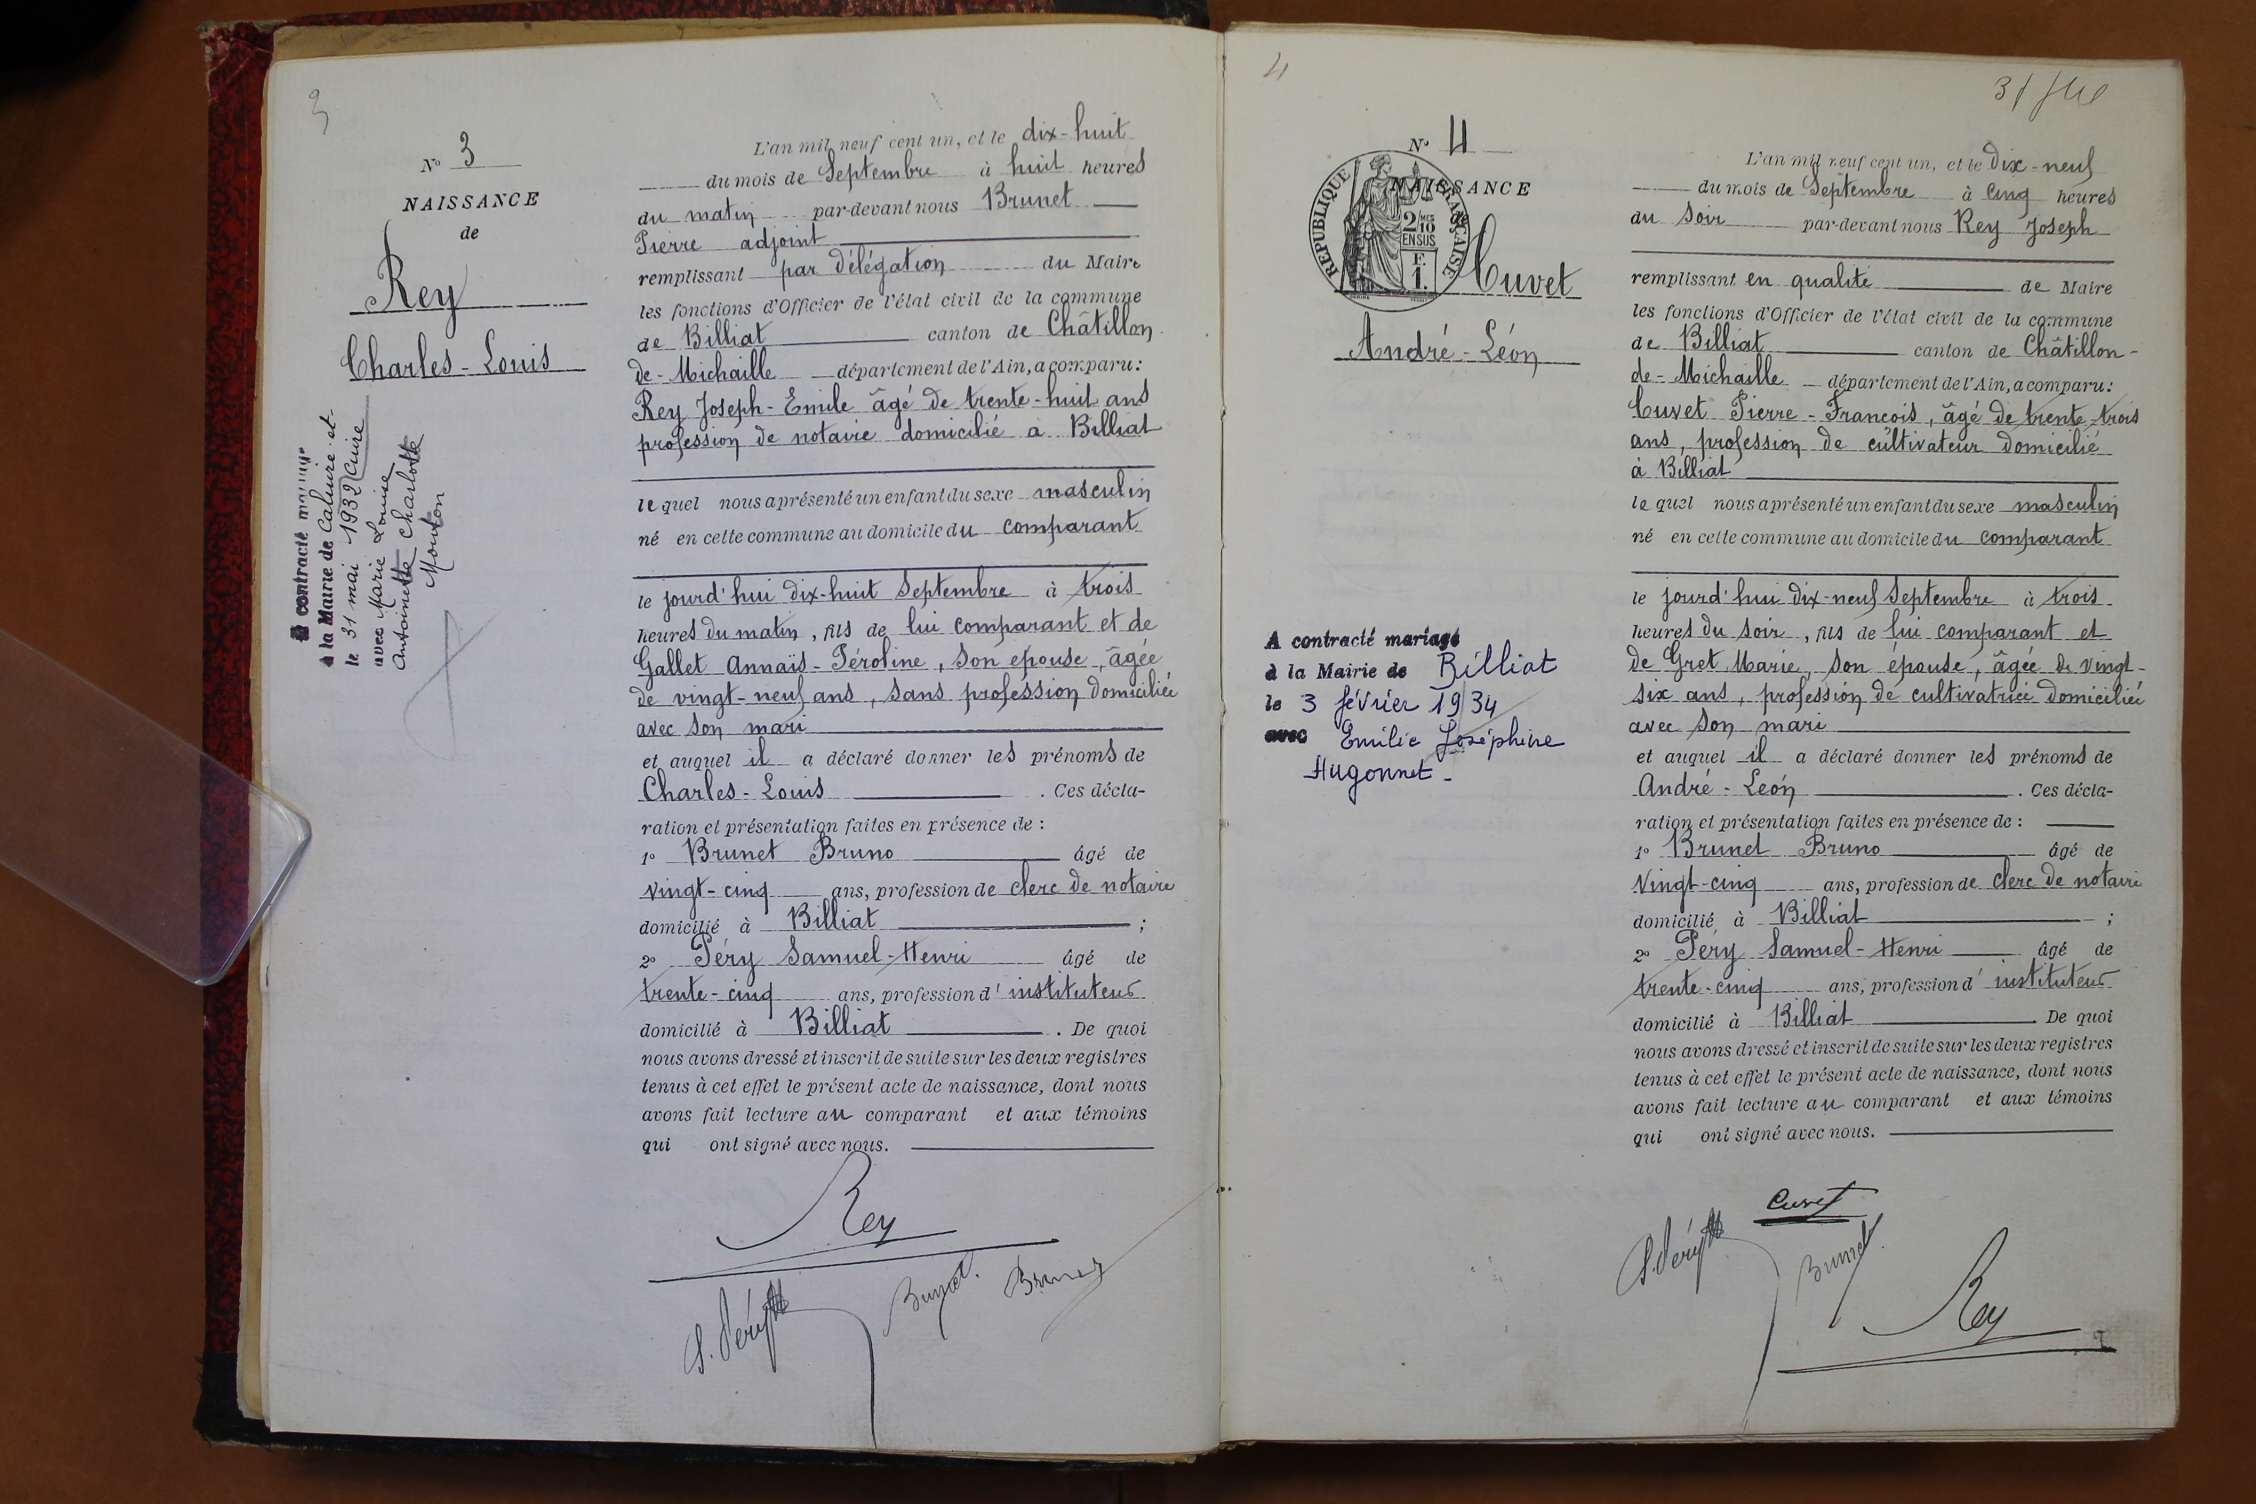 3
N° 3
NAISSANCE
de
Rey
Charles-Louis
A contracté mariage
à la Mairie de Caluire-et-Cuire
le 31 mai 1932
avec Marie Louise
Antoinette Charlotte
Mouton
L'an mil neuf cent un, et le dix-huit
du mois de Septembre à huit heures
du matin par-devant nous Brunet
Pierre adjoint
remplissant par délégation du Maire
les fonctions d'Officier de l'état civil de la commune
de Billiat canton de Châtillon
de-Michaille département de l'Ain, a comparu:
Rey Joseph-Emile âgé de trente-huit ans
profession de notaire domicilié à Billiat
lequel nous a présenté un enfant du sexe masculin
né en cette commune au domicile du comparant
le jourd'hui dix-huit Septembre à trois
heures du matin, fils de lui comparant et de
Gallet Annaïs-Péroline, son épouse, âgée
de vingt-neuf ans, sans profession domiciliée
avec son mari
et auquel il a déclaré donner les prénoms de
Charles-Louis. Ces décla-
ration et présentation faites en présence de :
1° Brunet Bruno âgé de
vingt-cinq ans, profession de clerc de notaire
domicilié à Billiat ;
2° Péry Samuel-Henri âgé de
trente-cinq ans, profession d'instituteur
domicilié à Billiat. De quoi
nous avons dressé et inscrit de suite sur les deux registres
tenus à cet effet le présent acte de naissance, dont nous
avons fait lecture au comparant et aux témoins
qui ont signé avec nous.
Rey
S. Péry Brunet Brunet
4
N° 4
NAISSANCE
RÉPUBLIQUE FRANÇAISE
2/10 MES
EN SUS
F.
1.
Cuvet
André-Léon
A contracté mariage
à la Mairie de Billiat
le 3 février 1934
avec Emilie Joséphine
Hugonnet
L'an mil neuf cent un, et le Dix-neuf
du mois de Septembre à cinq heures
du soir par-devant nous Rey Joseph
remplissant en qualité de Maire
les fonctions d'Officier de l'état civil de la commune
de Billiat canton de Châtillon-
de-Michaille département de l'Ain, a comparu:
Cuvet Pierre-François, âgé de trente-trois
ans, profession de cultivateur domicilié
à Billiat
lequel nous a présenté un enfant du sexe masculin
né en cette commune au domicile du comparant
le jourd'hui dix-neuf Septembre à trois
heures du soir, fils de lui comparant et
de Gret Marie, son épouse, âgée de vingt-
six ans, profession de cultivatrice domiciliée
avec son mari
et auquel il a déclaré donner les prénoms de
André-Léon. Ces décla-
ration et présentation faites en présence de :
1° Brunet Bruno âgé de
vingt-cinq ans, profession de clerc de notaire
domicilié à Billiat ;
2° Péry Samuel-Henri âgé de
trente-cinq ans, profession d'instituteur
domicilié à Billiat. De quoi
nous avons dressé et inscrit de suite sur les deux registres
tenus à cet effet le présent acte de naissance, dont nous
avons fait lecture au comparant et aux témoins
qui ont signé avec nous.
Cuvet
S. Péry Brunet
Rey